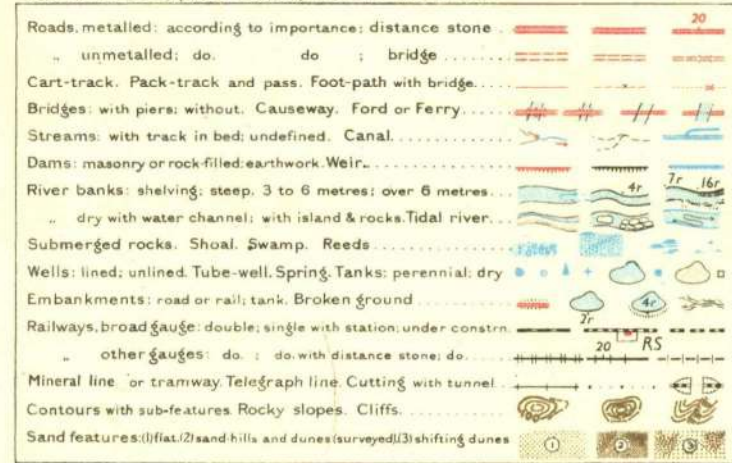 Roads, metalled: according to importance; distance stone ... 20
„ unmetalled; do. do ; bridge ........
Cart-track. Pack-track and pass. Foot-path with bridge.....
Bridges: with piers; without. Causeway. Ford or Ferry.......
Streams: with track in bed; undefined. Canal...............
Dams: masonry or rock-filled: earthwork. Weir..
River banks: shelving; steep, 3 to 6 metres; over 6 metres... 4r 7r 16r
„ dry with water channel; with island & rocks. Tidal river...
Submerged rocks. Shoal. Swamp. Reeds .................
Wells: lined; unlined. Tube-well. Spring. Tanks: perennial; dry
Embankments: road or rail; tank. Broken ground .......... 2r 4r
Railways, broad gauge: double; single with station; under constrn. RS
„ other gauges: do. ; do. with distance stone; do.... 20
Mineral line or tramway. Telegraph line. Cutting with tunnel..
Contours with sub-features. Rocky slopes. Cliffs............
Sand features: (1) flat, (2) sand-hills and dunes (surveyed), (3) shifting dunes 1 2 3